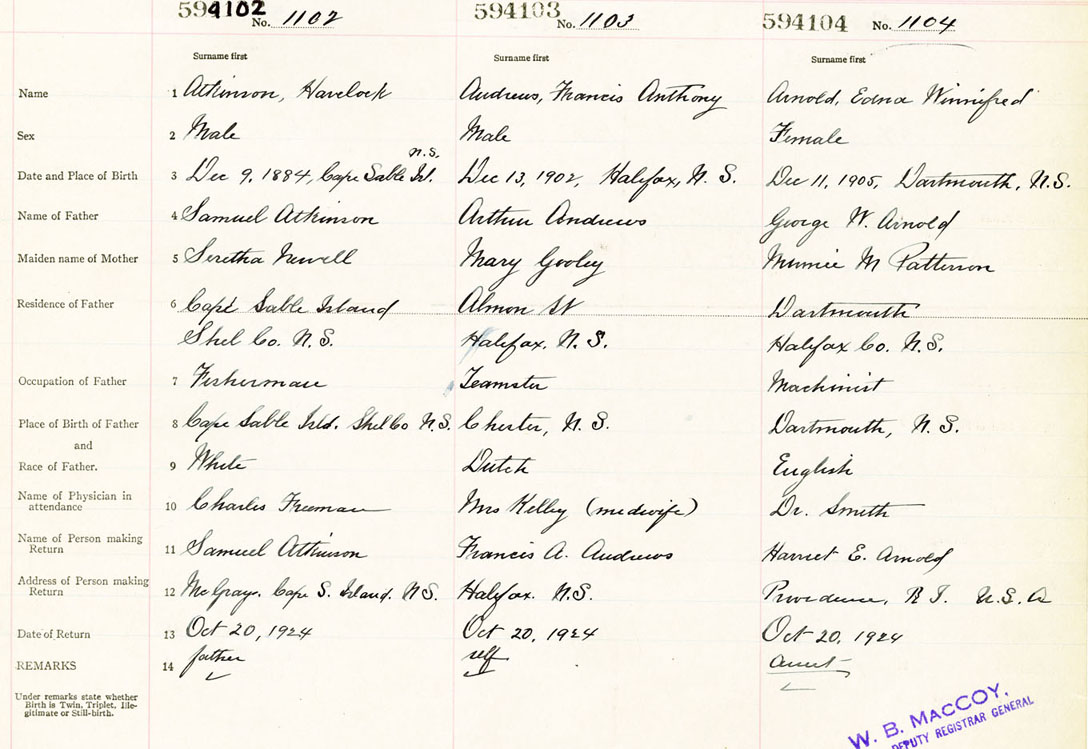 594102 No. 1102 594103 No. 1103 594104 No. 1104
Surname first Surname first Surname first
Name 1 Atkinson, Havelock Andrews, Francis Anthony Arnold, Edna Winnifred
Sex 2 Male Male Female
N.S.
Date and Place of Birth 3 Dec 9, 1884, Cape Sable Isl. Dec 13, 1902, Halifax, N.S. Dec 11, 1905, Dartmouth, N.S.
Name of Father 4 Samuel Atkinson Arthur Andrews George W. Arnold
Maiden name of Mother 5 Seretha Newell Mary Gooley Minnie M Patterson
Residence of Father 6 Cape Sable Island Almon St Dartmouth
Shel Co. N.S. Halifax. N.S. Halifax Co. N.S.
Occupation of Father 7 Fisherman Teamster Machinist
Place of Birth of Father 8 Cape Sable Isld. Shel Co N.S. Chester, N.S. Dartmouth, N.S.
and
Race of Father. 9 White Dutch English
Name of Physician in
attendance 10 Charles Freeman Mrs Kelley (midwife) Dr. Smith
Name of Person making
Return 11 Samuel Atkinson Francis A. Andrews Harriet E. Arnold
Address of Person making
Return 12 McGrays. Cape S. Island. N.S. Halifax. N.S. Providence, R I. U.S.A
Date of Return 13 Oct 20, 1924 Oct 20, 1924 Oct 20, 1924
REMARKS 14 father self aunt
Under remarks state whether
Birth is Twin, Triplet, Ille-
gitimate or Still-birth.
W. B. MACCOY,
DEPUTY REGISTRAR GENERAL